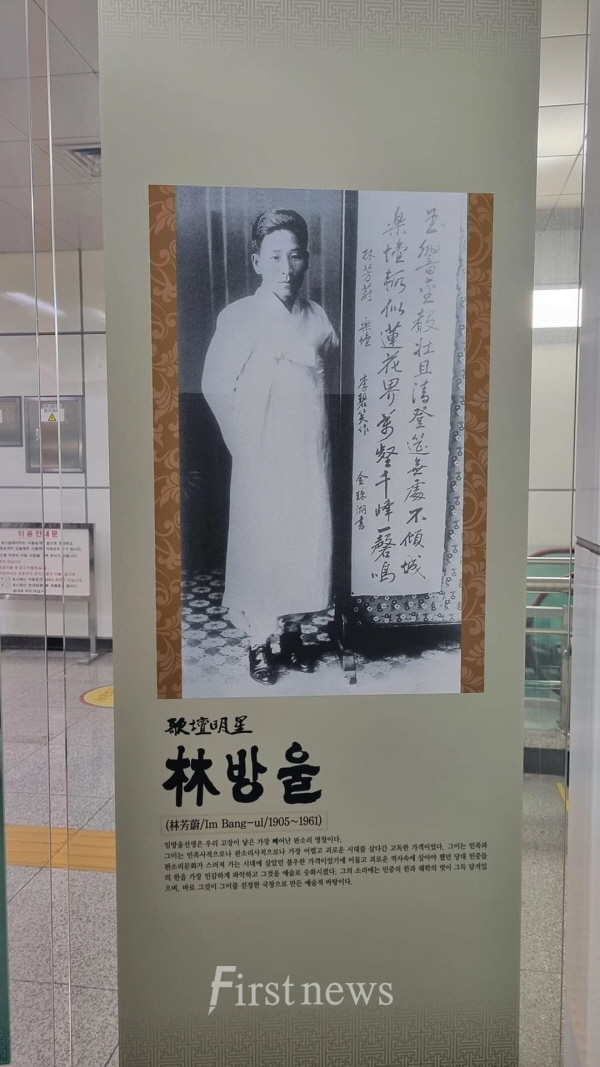 壯且清登筵無處不傾城
樂壇 似蓮花界萬壑千峰一磬鳴
林芳蔚 樂壇
이용안내문
歌壇明星
林방울
(林芳蔚/Im Bang-ul/1905~1961)
임방울선생은 우리 고장이 낳은 가장 빼어난 판소리 명창이다.
그이는 민족사적으로나 판소리사적으로나 가장 어렵고 괴로운 시대를 살다간 고독한 가객이었다. 그이는 민족과
판소리문화가 스러져 가는 시대에 살았던 불우한 가객이었기에 어둡고 괴로운 역사속에 살아야 했던 당대 민중들
의 한을 가장 민감하게 파악하고 그것을 예술로 승화시켰다. 그의 소리에는 민중의 한과 해학의 멋이 그득 담겨있
으며, 바로 그것이 그이를 진정한 국창으로 만든 예술적 바탕이다.
Firstnews